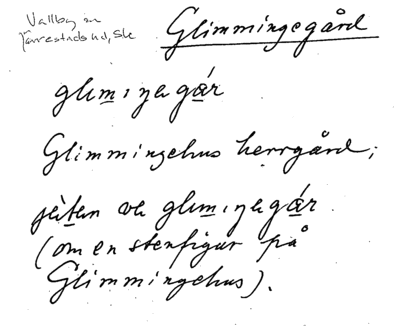 Vallby sn
Järrestads hd, Sk
Glimmingegård
glım̲ıŋagá̲r
Glimmingehus herrgård;
jèt̲an va glım̲ıŋagá̲r
(om en stenfigur på
Glimmingehus).